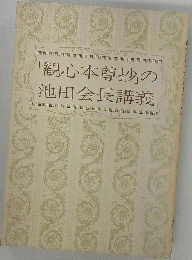 「観心本尊抄の
池田会長講義